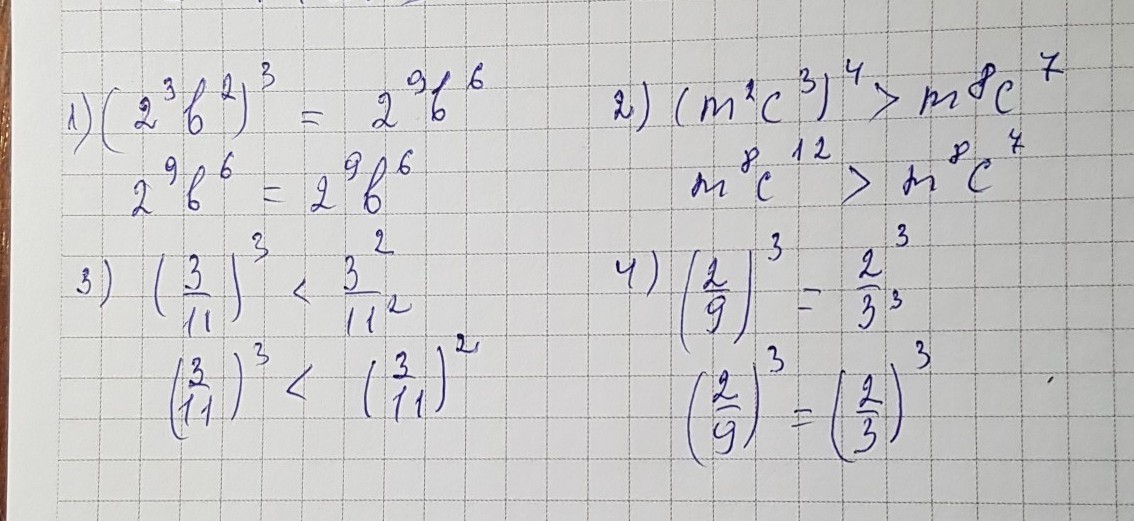 1) (2³b²)³ = 2⁹b⁶
2⁹b⁶ = 2⁹b⁶
2) (m²c³)⁴ > m⁸c⁷
m⁸c¹² > m⁸c⁷
3) (3/11)³ < 3²/11²
(3/11)³ < (3/11)²
4) (2/9)³ = 2³/3³
(2/9)³ = (2/3)³